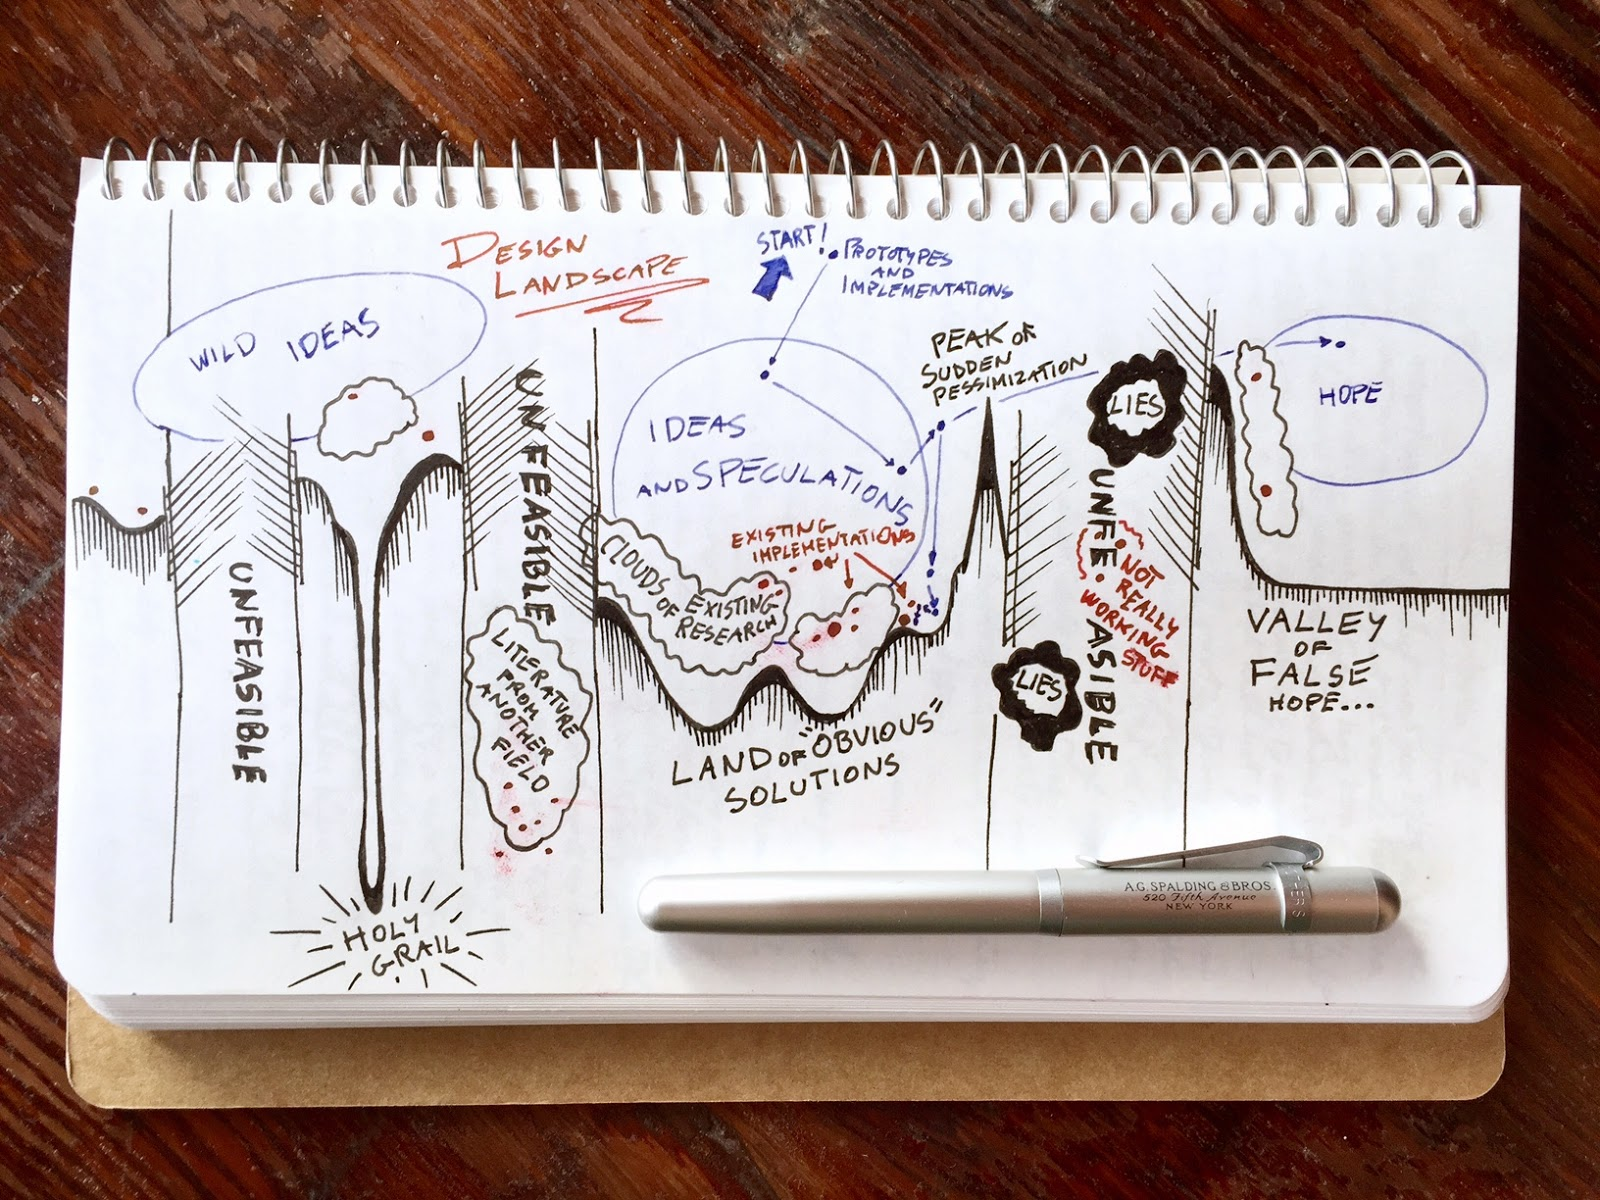 DESIGN
LANDSCAPE
START!
PROTOTYPES
AND
IMPLEMENTATIONS
WILD IDEAS
UNFEASIBLE
HOLY
GRAIL
UNFEASIBLE
LITERATURE
FROM
ANOTHER
FIELD
IDEAS
AND SPECULATIONS
EXISTING
IMPLEMENTATIONS
CLOUDS OF
EXISTING
RESEARCH
LAND OF "OBVIOUS"
SOLUTIONS
PEAK OF
SUDDEN
PESSIMIZATION
LIES
UNFEASIBLE
NOT
REALLY
WORKING
STUFF
LIES
HOPE
VALLEY
OF
FALSE
HOPE...
A.G. SPALDING & BROS
520 Fifth Avenue
NEW YORK